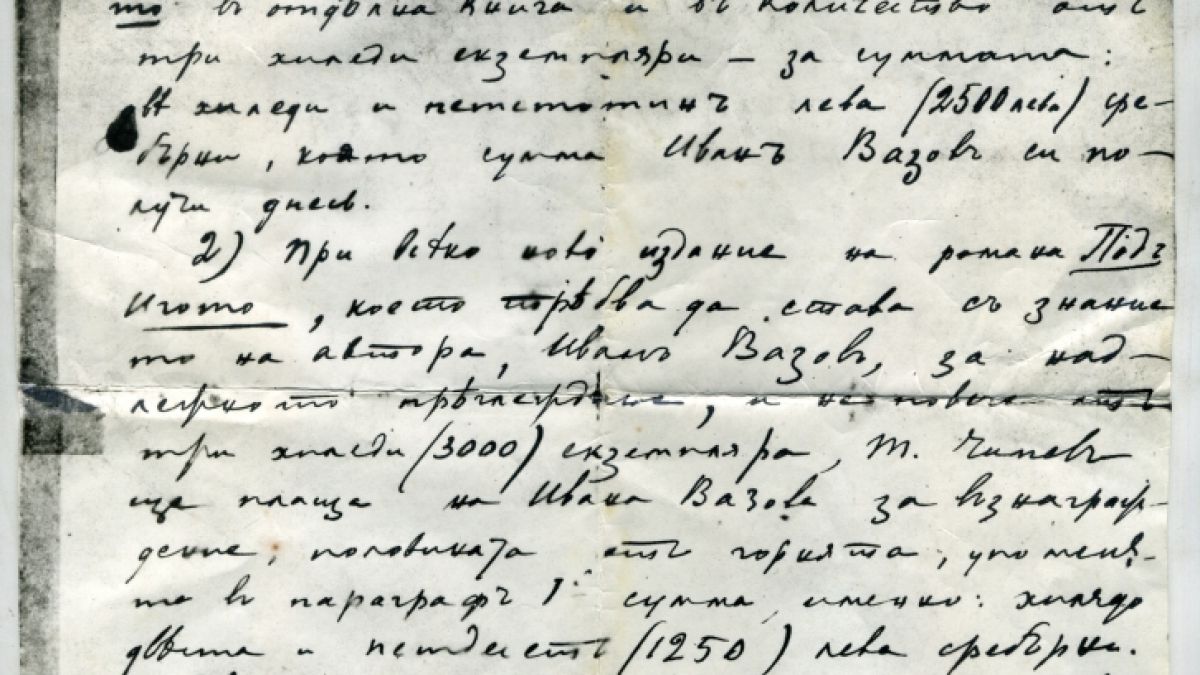 то въ отдѣлна книга и въ количество отъ
три хиледи екземпляри — за суммата:
хиледи и петстотинъ лева (2500 лева) сре-
бърни, която сумма Иванъ Вазовъ си по-
лучи днесь.
2) При всѣко ново издание на романа Подъ
Игото, което трѣбва да става съ знание
то на автора, Иванъ Вазовъ, за над-
лежното прѣглеждане, и не повече отъ
три хиледи (3000) екземпляра, Т. Чипевъ
ще плаща на Ивана Вазова за възнаграж-
дение, половината отъ горнята, упоменѫ-
та въ параграфъ 1 сумма, именно: хилядо
двѣста и петдесетъ (1250) лева сребърни.